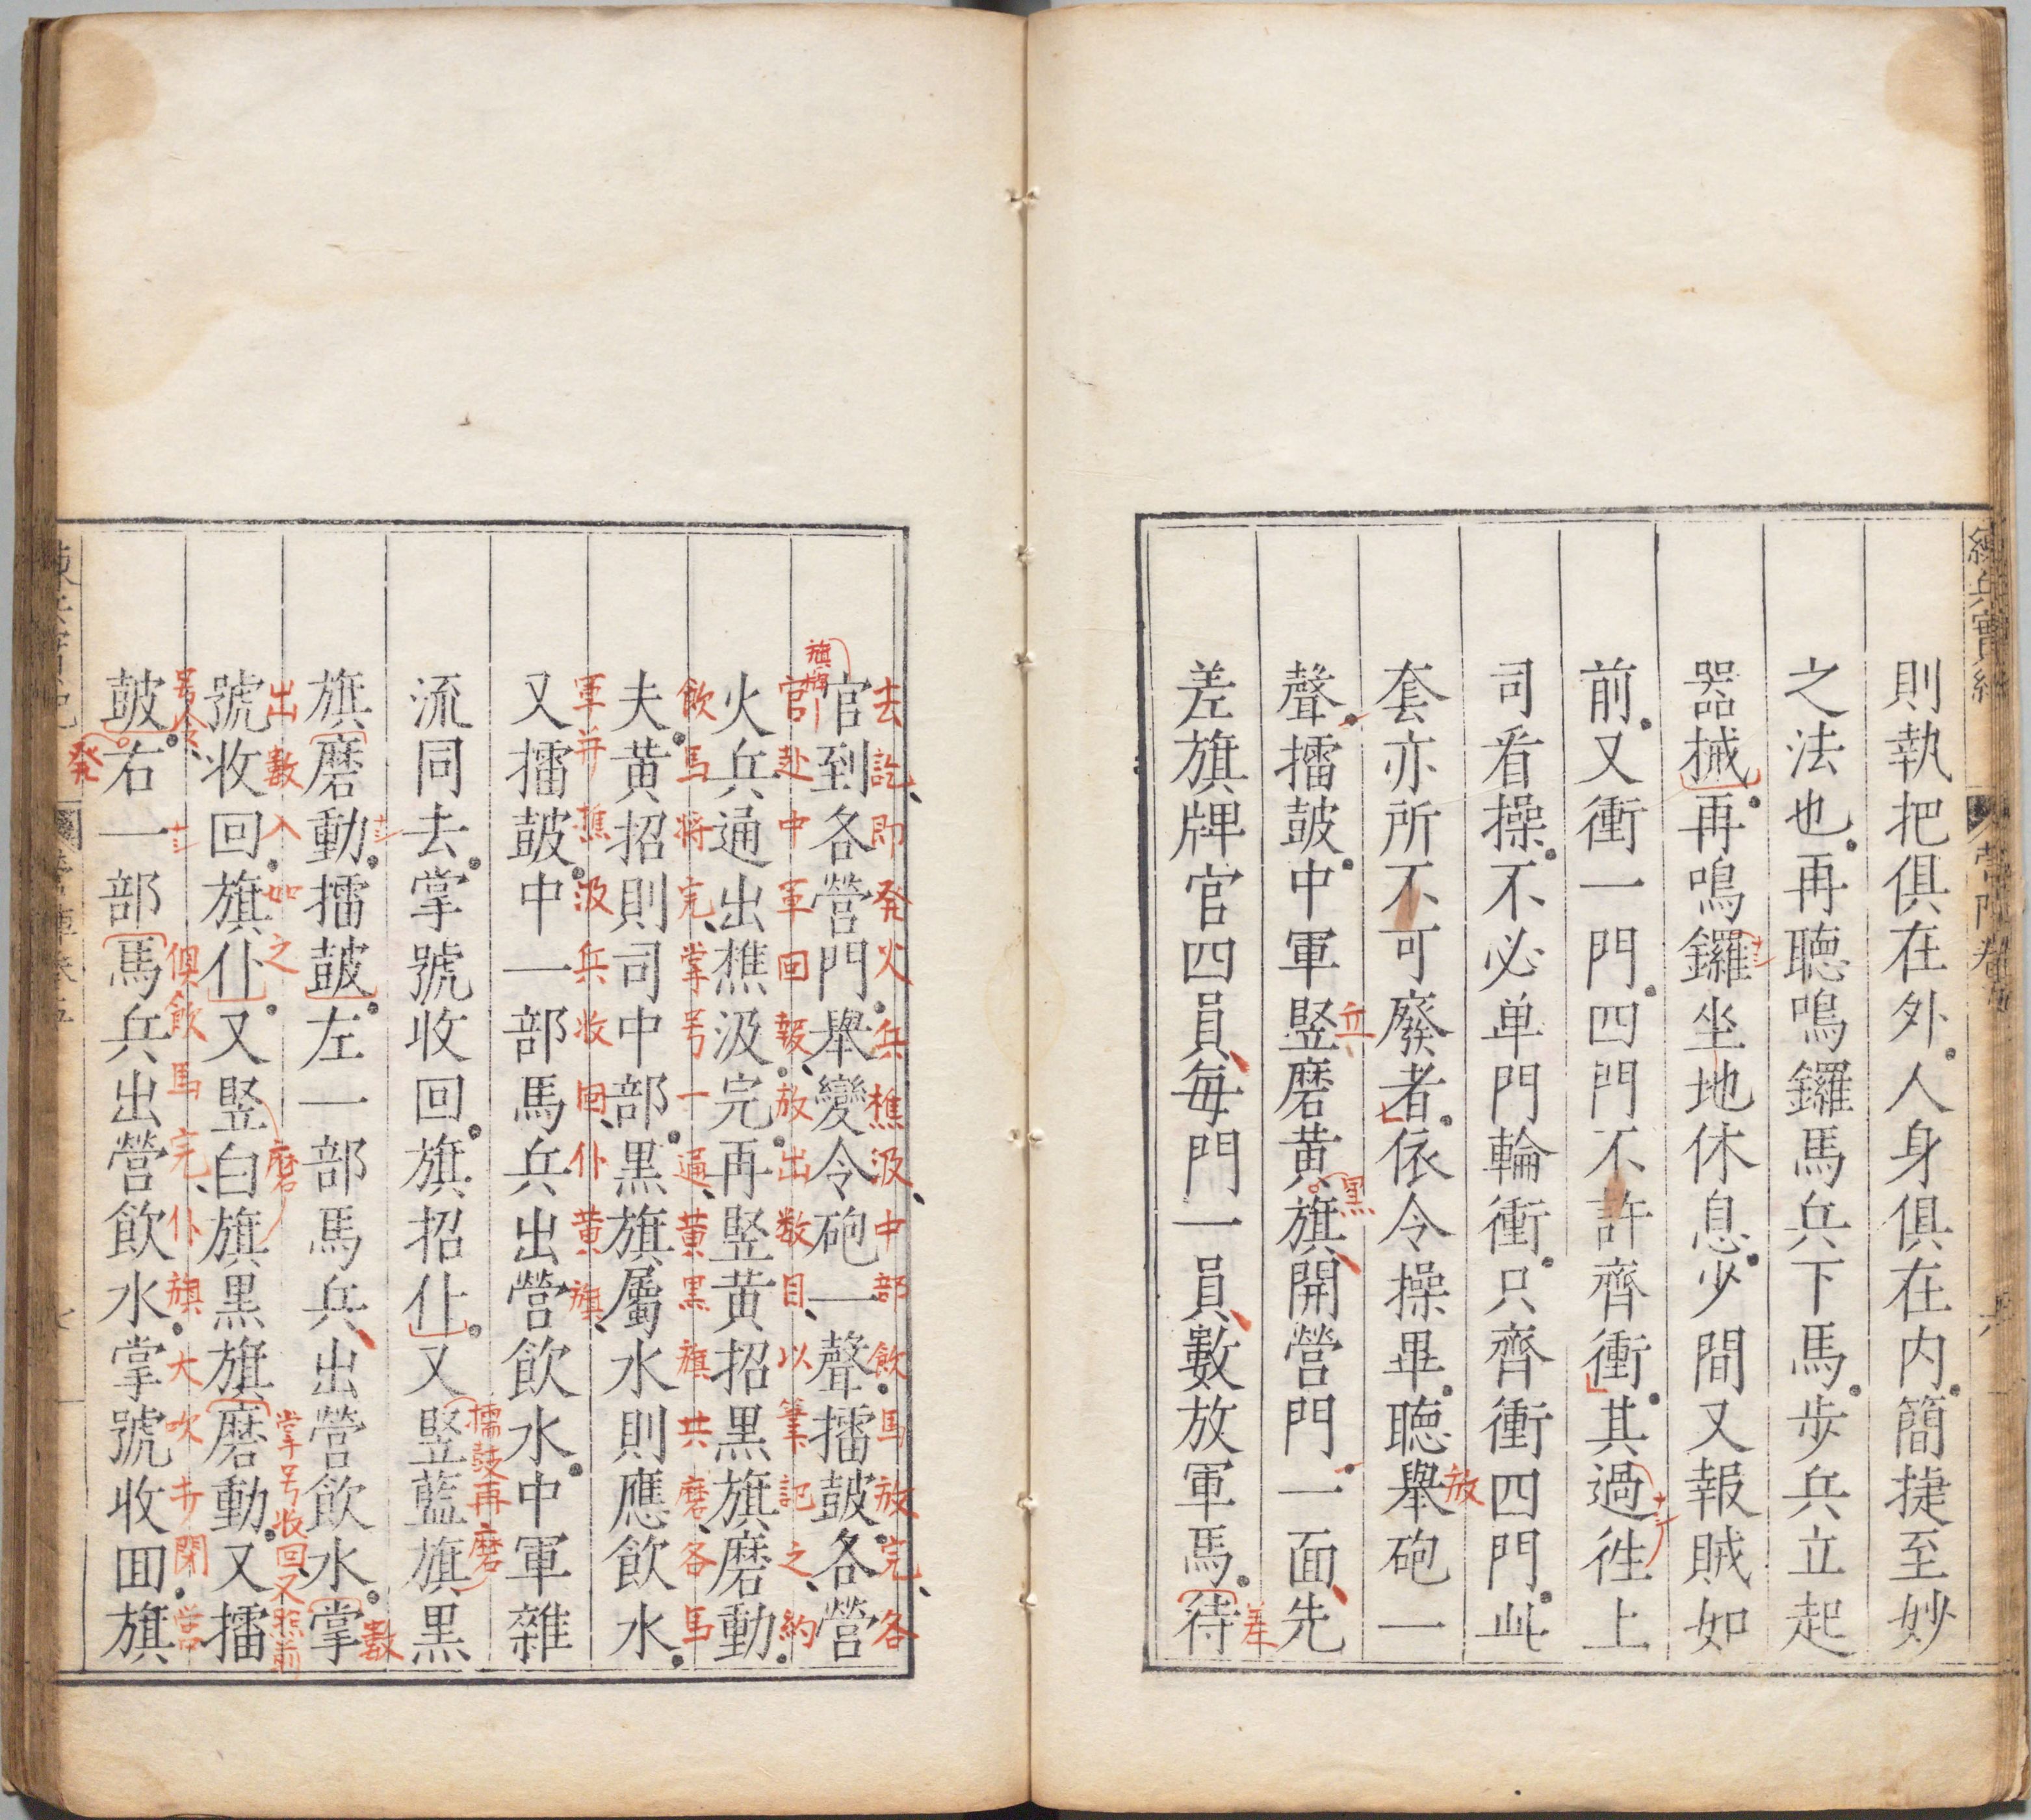 則執把俱在外人身俱在内簡捷至妙
之法也再聴鳴鑼馬兵下馬步兵立起
器械再鳴鑼坐地休息少間又報賊如
前又衝一門四門不許齊衝其過徃上
司看操不必单門輪衝只齊衝四門此
套亦所不可廢者依令操畢聴舉砲一
放
聲擂鼓中軍竪磨黄旗開營門一面先
兵
黒
差旗牌官四員每門一員數放軍馬待
差
去訖即発火兵樵汲中部飲馬放完各
官到各營門舉變令砲一聲擂鼓各營
旗牌
官赴中軍回報放出数目以筆記之約
火兵通出樵汲完再竪黄招黒旗磨動
飲馬将完掌号一遍黄黒旗共磨各馬
夫黄招則司中部黒旗屬水則應飲水
軍并樵汲兵收回仆黄旗
又擂鼓中一部馬兵出營飲水中軍雜
擂鼓再磨
流同去掌號收回旗招仆又竪藍旗黒
數
旗磨動擂鼓左一部馬兵出營飲水掌
出數入如之
磨
掌号收回又照前
號收回旗仆又竪白旗黒旗磨動又擂
号令
俱飲馬完仆旗大吹打閉營
鼓右一部馬兵出營飲水掌號收回旗
発